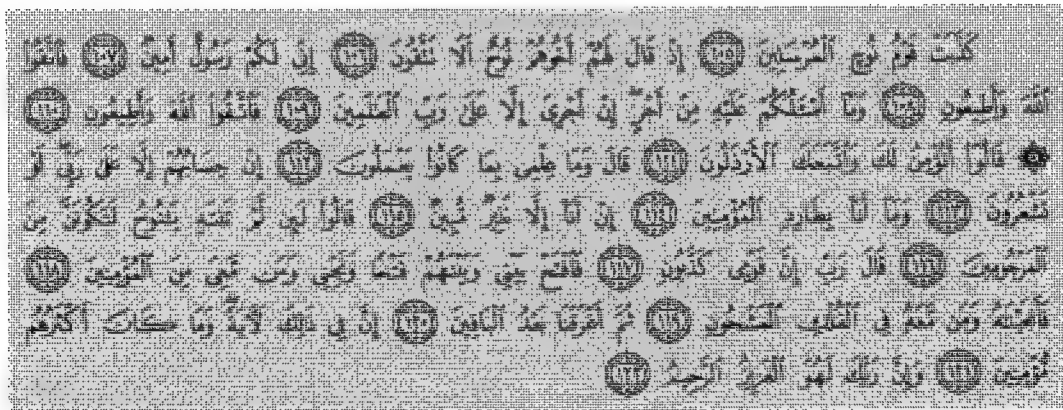 كَذَّبَتْ قَوْمُ نُوحٍ ٱلْمُرْسَلِينَ ١٠٥ إِذْ قَالَ لَهُمْ أَخُوهُمْ نُوحٌ أَلَا تَتَّقُونَ ١٠٦ إِنِّى لَكُمْ رَسُولٌ أَمِينٌ ١٠٧ فَٱتَّقُوا۟
ٱللَّهَ وَأَطِيعُونِ ١٠٨ وَمَآ أَسْـَٔلُكُمْ عَلَيْهِ مِنْ أَجْرٍ إِنْ أَجْرِىَ إِلَّا عَلَىٰ رَبِّ ٱلْعَـٰلَمِينَ ١٠٩ فَٱتَّقُوا۟ ٱللَّهَ وَأَطِيعُونِ ١١٠
۞ قَالُوٓا۟ أَنُؤْمِنُ لَكَ وَٱتَّبَعَكَ ٱلْأَرْذَلُونَ ١١١ قَالَ وَمَا عِلْمِى بِمَا كَانُوا۟ يَعْمَلُونَ ١١٢ إِنْ حِسَابُهُمْ إِلَّا عَلَىٰ رَبِّى لَوْ
تَشْعُرُونَ ١١٣ وَمَآ أَنَا۠ بِطَارِدِ ٱلْمُؤْمِنِينَ ١١٤ إِنْ أَنَا۠ إِلَّا نَذِيرٌ مُّبِينٌ ١١٥ قَالُوا۟ لَئِن لَّمْ تَنتَهِ يَـٰنُوحُ لَتَكُونَنَّ مِنَ
ٱلْمَرْجُومِينَ ١١٦ قَالَ رَبِّ إِنَّ قَوْمِى كَذَّبُونِ ١١٧ فَٱفْتَحْ بَيْنِى وَبَيْنَهُمْ فَتْحًا وَنَجِّنِى وَمَن مَّعِىَ مِنَ ٱلْمُؤْمِنِينَ ١١٨
فَأَنجَيْنَـٰهُ وَمَن مَّعَهُۥ فِى ٱلْفُلْكِ ٱلْمَشْحُونِ ١١٩ ثُمَّ أَغْرَقْنَا بَعْدُ ٱلْبَاقِينَ ١٢٠ إِنَّ فِى ذَٰلِكَ لَـَٔايَةً وَمَا كَانَ أَكْثَرُهُم
مُّؤْمِنِينَ ١٢١ وَإِنَّ رَبَّكَ لَهُوَ ٱلْعَزِيزُ ٱلرَّحِيمُ ١٢٢